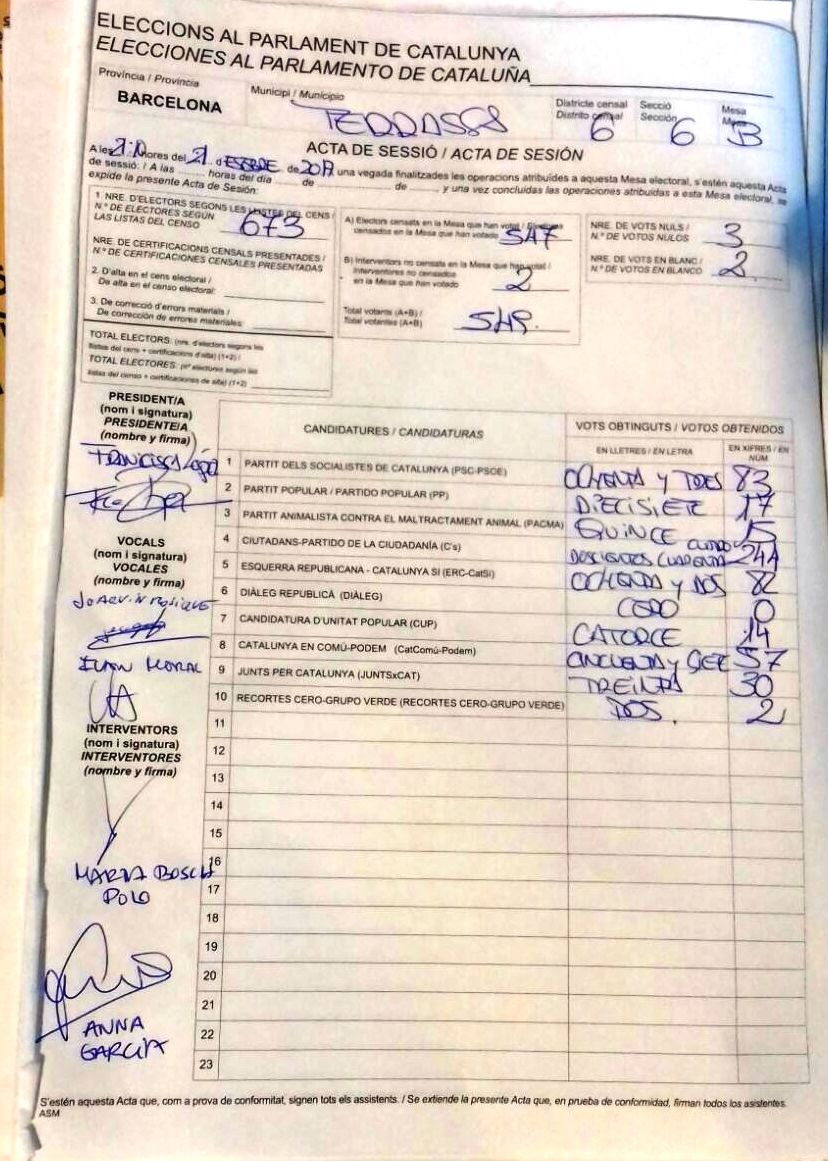 ELECCIONS AL PARLAMENT DE CATALUNYA
ELECCIONES AL PARLAMENTO DE CATALUÑA
Província / Provincia
BARCELONA
Municipi / Municipio
TERRASSA
Districte censal
Distrito censal
6
Secció
Sección
6
Mesa
Mesa
B
ACTA DE SESSIÓ / ACTA DE SESIÓN
A les hores del 21 d de 2017 una vegada finalitzades les operacions atribuïdes a aquesta Mesa electoral, s'estén aquesta Acta
de sessió: / A las ........ horas del día ........ de ........ de ........ y una vez concluidas las operaciones atribuidas a esta Mesa electoral, se
expide la presente Acta de Sesión:
1. NRE. D'ELECTORS SEGONS LES LLISTES DEL CENS /
N.º DE ELECTORES SEGÚN
LAS LISTAS DEL CENSO
673
NRE. DE CERTIFICACIONS CENSALS PRESENTADES /
N.º DE CERTIFICACIONES CENSALES PRESENTADAS
2. D'alta en el cens electoral /
De alta en el censo electoral:
3. De correcció d'errors materials /
De corrección de errores materiales:
TOTAL ELECTORS: (nre. d'electors segons les
llistes del cens + certificacions d'alta) (1+2) /
TOTAL ELECTORES: (nº electores según las
listas del censo + certificaciones de alta) (1+2)
A) Electors censats en la Mesa que han votat / Electores
censados en la Mesa que han votado
547
B) Interventors no censats en la Mesa que han votat /
Interventores no censados
en la Mesa que han votado
2
Total votants (A+B) /
Total votantes (A+B)
549.
NRE. DE VOTS NULS /
N.º DE VOTOS NULOS
3
NRE. DE VOTS EN BLANC /
N.º DE VOTOS EN BLANCO
2
PRESIDENT/A
(nom i signatura)
PRESIDENTE/A
(nombre y firma)
VOCALS
(nom i signatura)
VOCALES
(nombre y firma)
JOAQUIN
MORAL
INTERVENTORS
(nom i signatura)
INTERVENTORES
(nombre y firma)
MARTA BOSCH
POLO
ANNA
GARCIA
CANDIDATURES / CANDIDATURAS
VOTS OBTINGUTS / VOTOS OBTENIDOS
EN LLETRES / EN LETRA
EN XIFRES / EN
NÚM
1 PARTIT DELS SOCIALISTES DE CATALUNYA (PSC-PSOE) OCHENTA Y TRES 83
2 PARTIT POPULAR / PARTIDO POPULAR (PP) DIECISIETE 17
3 PARTIT ANIMALISTA CONTRA EL MALTRACTAMENT ANIMAL (PACMA) QUINCE 15
4 CIUTADANS-PARTIDO DE LA CIUDADANÍA (C's) DOSCIENTOS CUARENTA CUATRO 244
5 ESQUERRA REPUBLICANA - CATALUNYA SI (ERC-CatSí) OCHENTA Y DOS 82
6 DIÀLEG REPUBLICÀ (DIÀLEG) CERO 0
7 CANDIDATURA D'UNITAT POPULAR (CUP) CATORCE 14
8 CATALUNYA EN COMÚ-PODEM (CatComú-Podem) CINCUENTA Y SIETE 57
9 JUNTS PER CATALUNYA (JUNTSxCAT) TREINTA 30
10 RECORTES CERO-GRUPO VERDE (RECORTES CERO-GRUPO VERDE) DOS. 2
11
12
13
14
15
16
17
18
19
20
21
22
23
S'estén aquesta Acta que, com a prova de conformitat, signen tots els assistents. / Se extiende la presente Acta que, en prueba de conformidad, firman todos los asistentes.
ASM